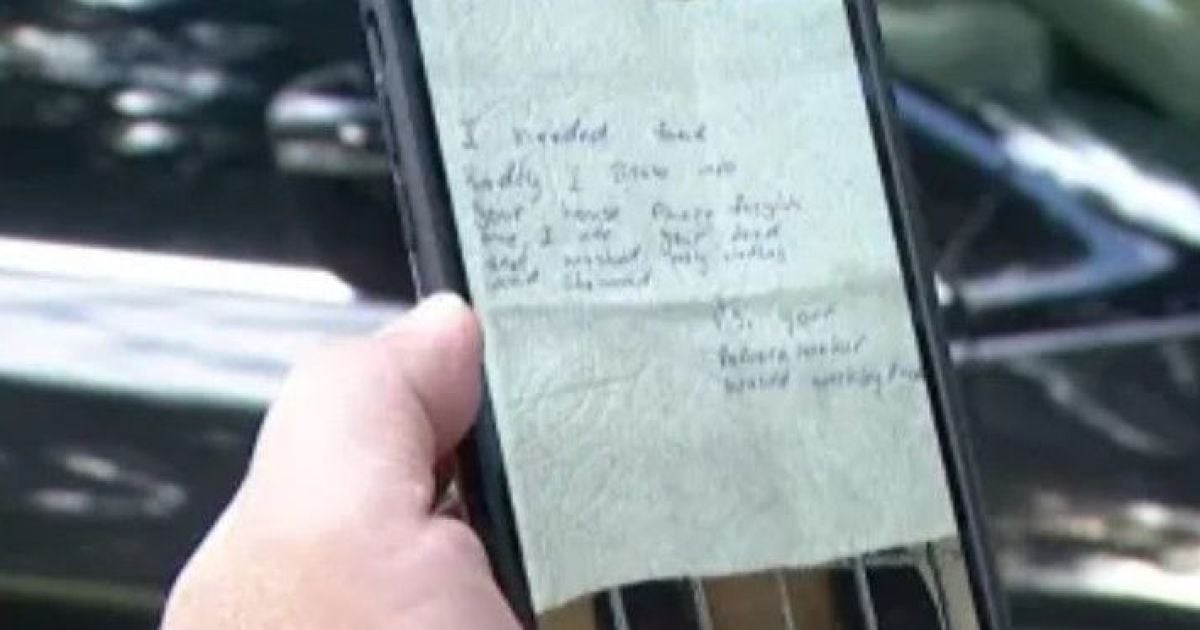 I needed food
badly I Broke into
your house Please forgive
me, I ate your food
and washed my clothes
and showered
P.S. your
before